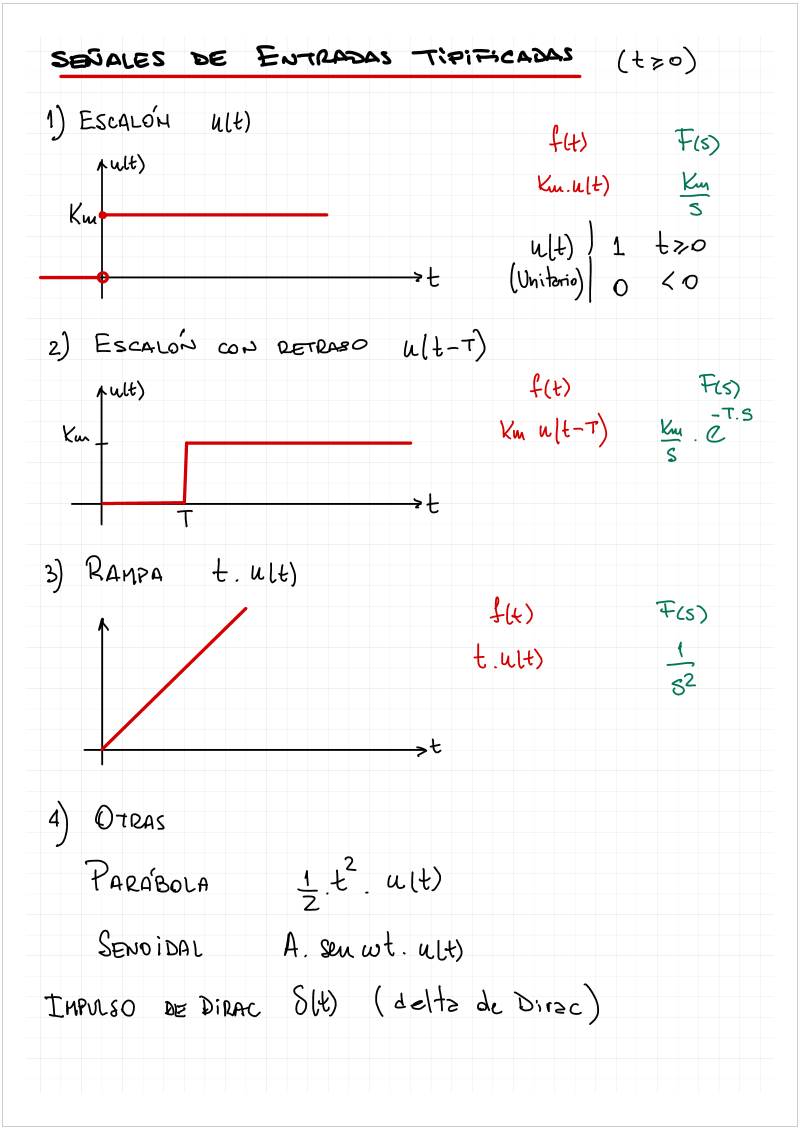 SEÑALES DE ENTRADAS TIPIFICADAS (t ≥ 0)
1) ESCALÓN u(t)
f(t) F(s)
Km . u(t) Km/s
u(t)
Km
t
u(t) | 1 t ≥ 0
(Unitario) | 0 < 0
2) ESCALÓN CON RETRASO u(t-T)
f(t) F(s)
Km u(t-T) Km/s . e^-T.s
u(t)
Km
t
T
3) RAMPA t . u(t)
f(t) F(s)
t . u(t) 1/s²
t
4) OTRAS
PARÁBOLA 1/2 . t² . u(t)
SENOIDAL A . sen wt . u(t)
IMPULSO DE DIRAC δ(t) (delta de Dirac)